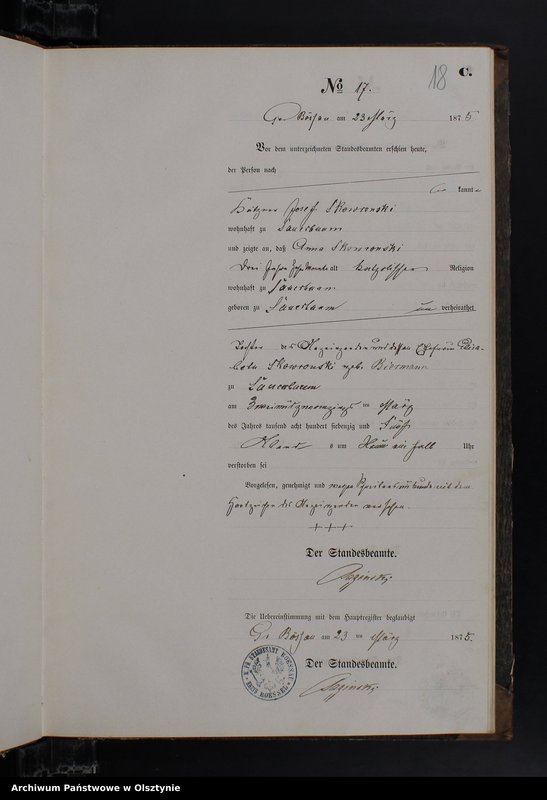 18 C.
No 17.
Gr Bößau am 23 März 1875
Vor dem unterzeichneten Standesbeamten erschien heute,
der Person nach
kannte
Josef Skowronski
wohnhaft zu Sauerbaum
und zeigte an, daß Anna Skowronski
Drei Jahre alt katholischer Religion
wohnhaft zu Sauerbaum
geboren zu Sauerbaum un verheirathet
Tochter des Anzeigenden und dessen Ehefrau
Skowronski geb. Biermann
zu Sauerbaum
am Zweiundzwanzigsten März
des Jahres tausend acht hundert siebenzig und Fünf
Abends um Neun ein halb Uhr
verstorben sei
Vorgelesen, genehmigt und mit dem
Handzeichen des Anzeigenden versehen.
+++
Der Standesbeamte.
Die Uebereinstimmung mit dem Hauptregister beglaubigt
Gr. Bößau am 23 ten März 1875.
Der Standesbeamte.
Archiwum Państwowe w Olsztynie